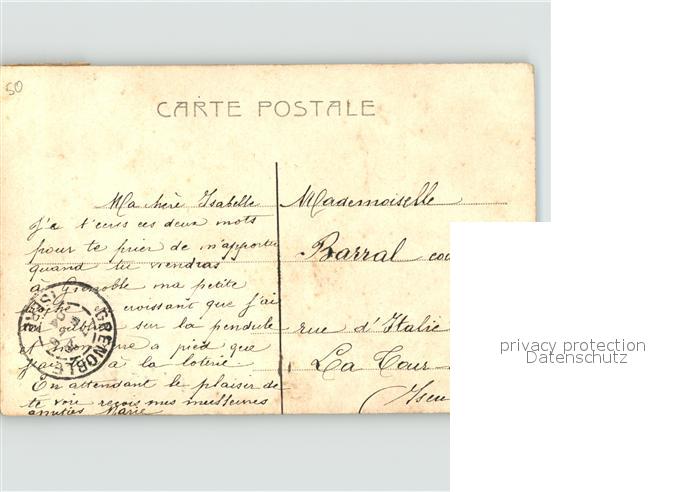 50
CARTE POSTALE
Ma chère Isabelle
Je t'ecris ces deux mots
pour te prier de m'apporter
quand tu viendras
à Grenoble ma petite
croissant que j'ai
oublié sur la pendule
a pied que
j'ai à la loterie.
En attendant le plaisir de
te voir reçois mes meilleures
amitiés Marie
GRENOBLE
ISERE
Mademoiselle
Barral
rue d'Italie
La Tour
Isère
privacy protection
Datenschutz